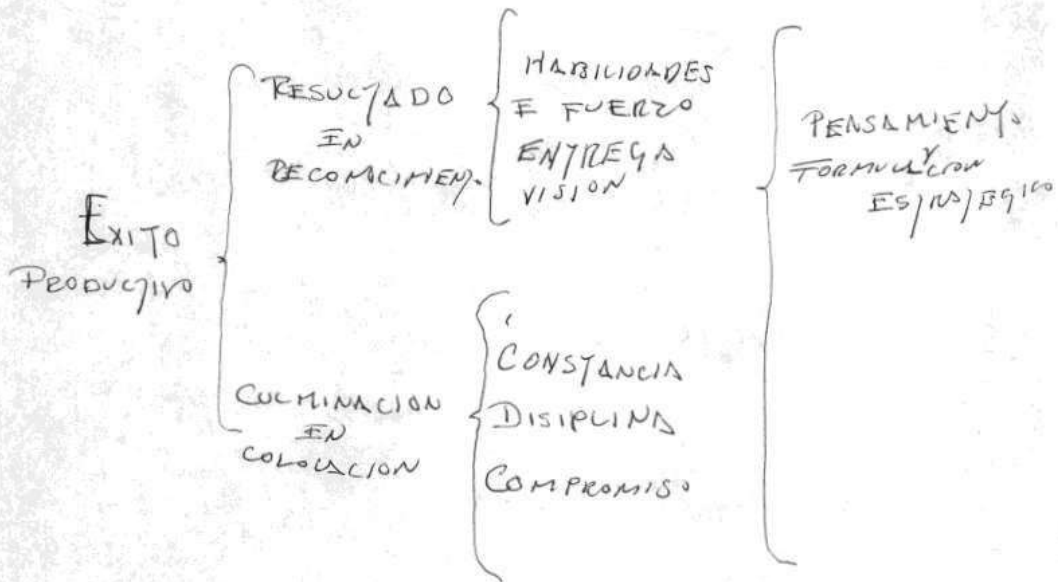 ÉXITO
PRODUCTIVO
RESULTADO
EN
RECONOCIMIENT.
HABILIDADES
E FUERZO
ENTREGA
VISION
CULMINACION
EN
COLOCACION
CONSTANCIA
DISIPLINA
COMPROMISO
PENSAMIENTO
Y
FORMULACION
ESTRATEGICO